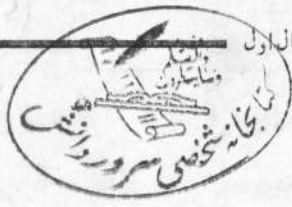 ل اول
والقلم
ومايسطرون
کتابخانه شخصی سرور دانش